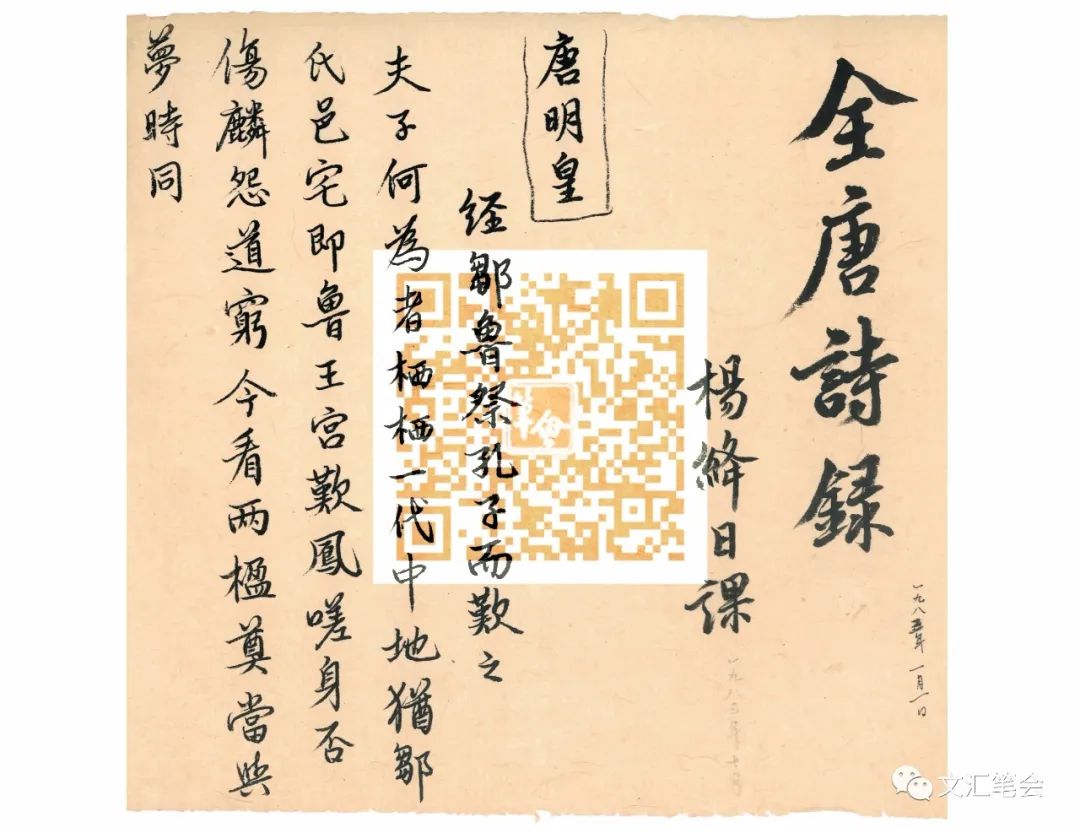 全唐詩録
一九八五年 一月一日
楊絳日課
唐明皇
经鄒魯祭孔子而歎之
夫子何為者栖栖一代中地猶鄒
氏邑宅即魯王宫歎鳳嗟身否
傷麟怨道窮今看两楹奠當與
夢時同
文汇笔会